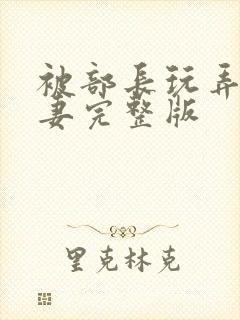 被部長玩弄
妻完整版
里克林克